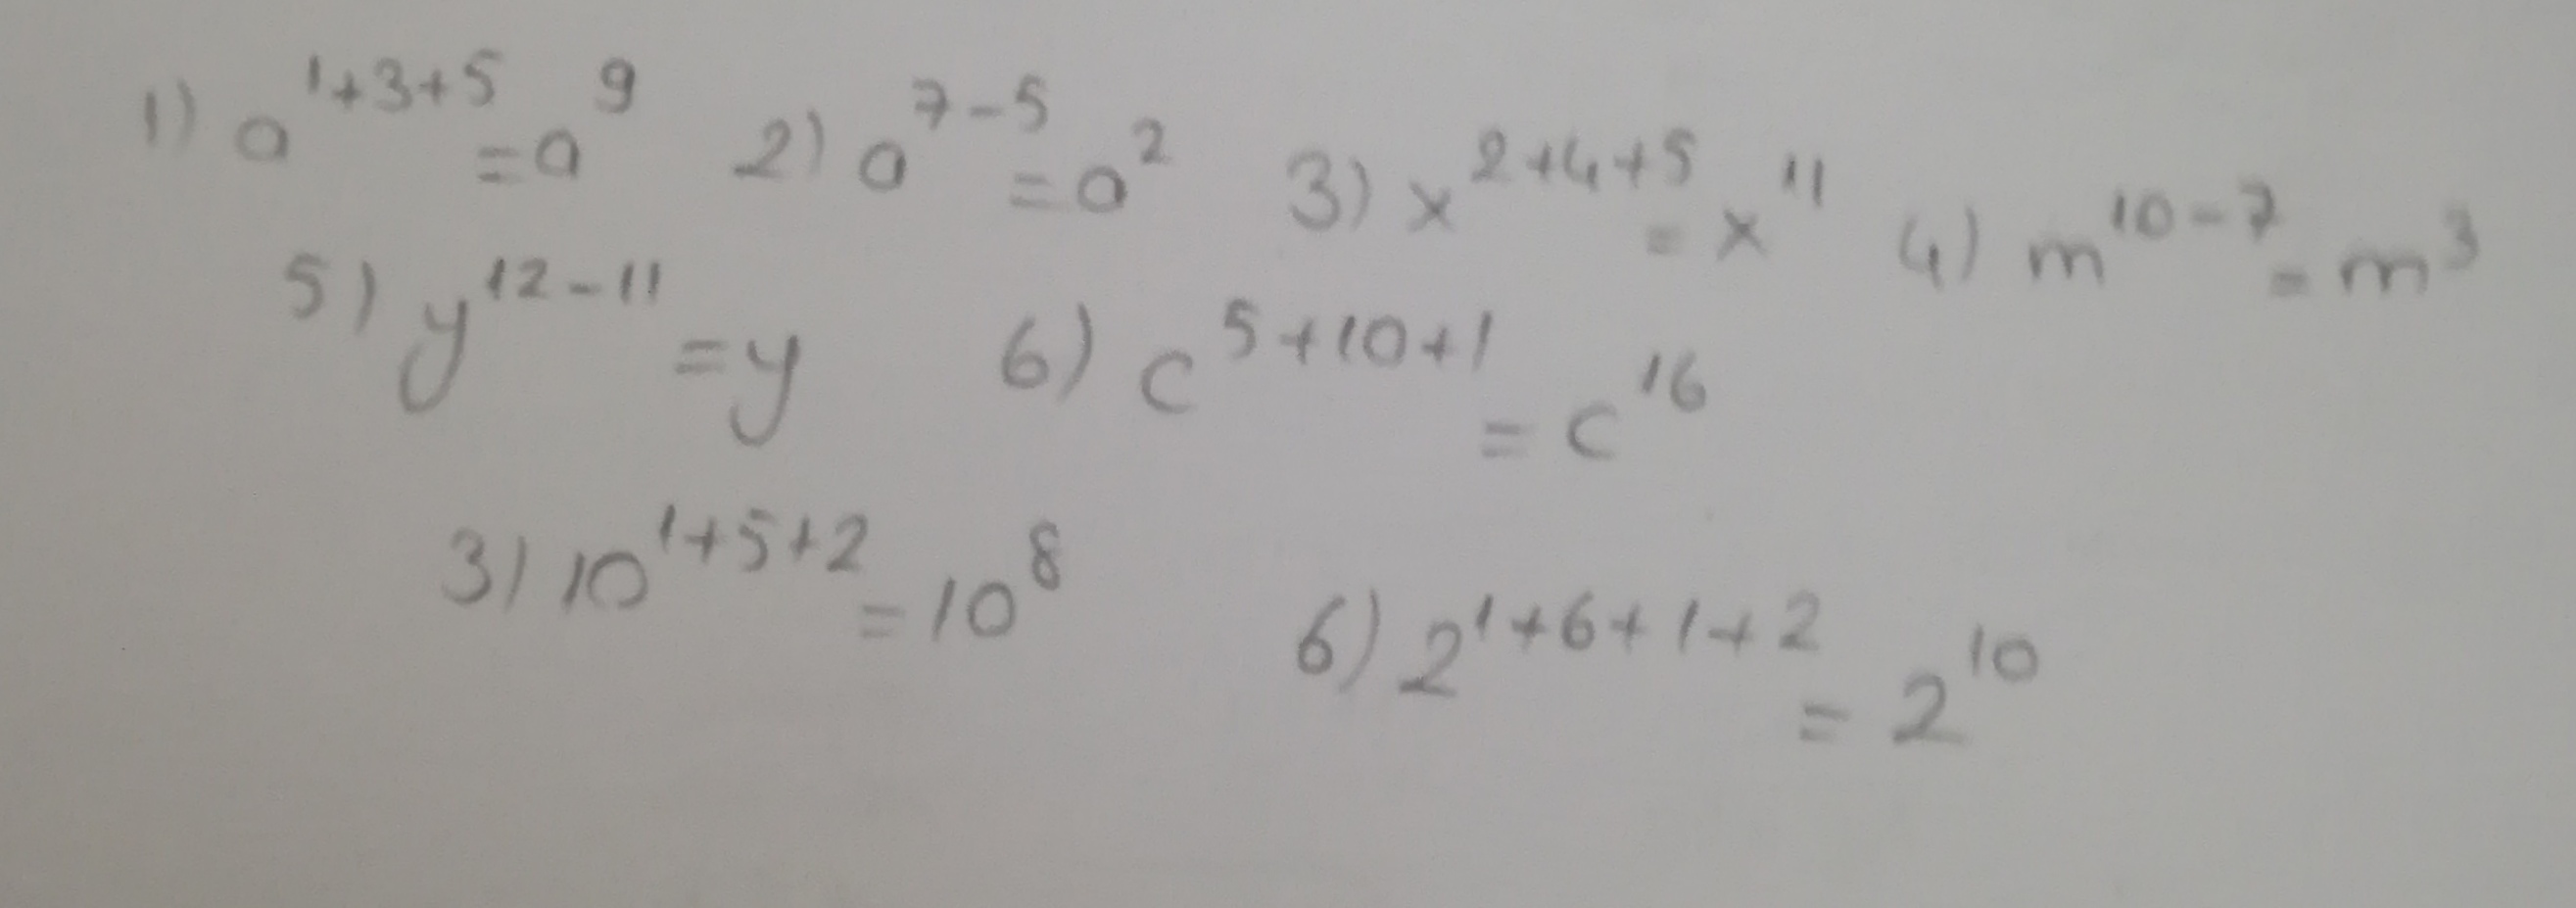 1) a^{1+3+5} = a^9 2) a^{7-5} = a^2 3) x^{2+4+5} = x^{11} 4) m^{10-7} = m^3
5) y^{12-11} = y 6) c^{5+10+1} = c^{16}
3) 10^{1+5+2} = 10^8 6) 2^{1+6+1+2} = 2^{10}